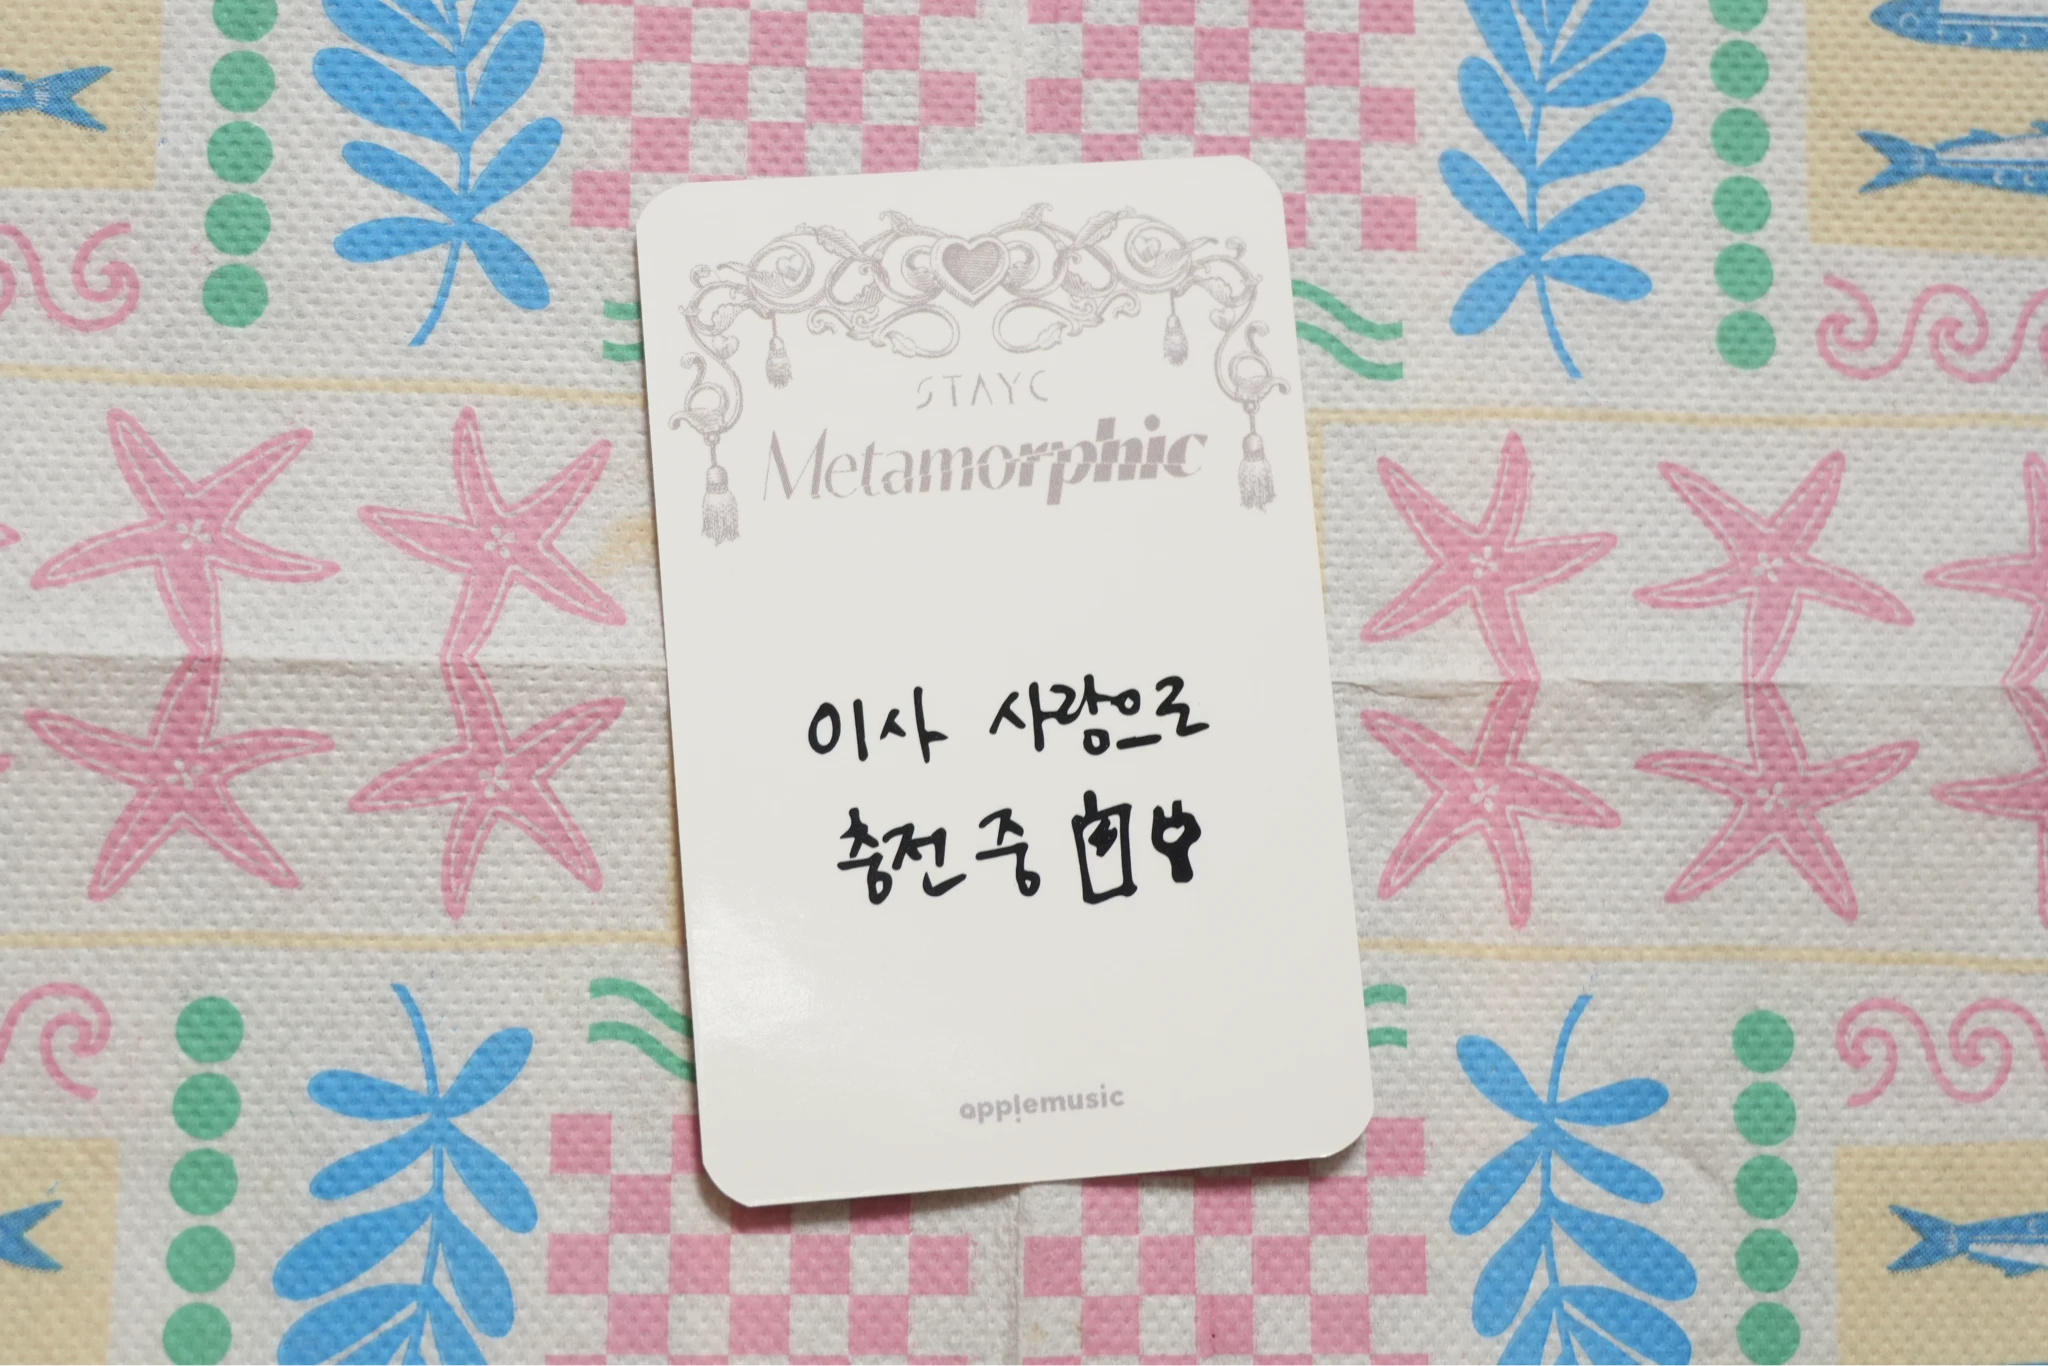 STAYC
Metamorphic
이사 사랑으로
충전중
applemusic